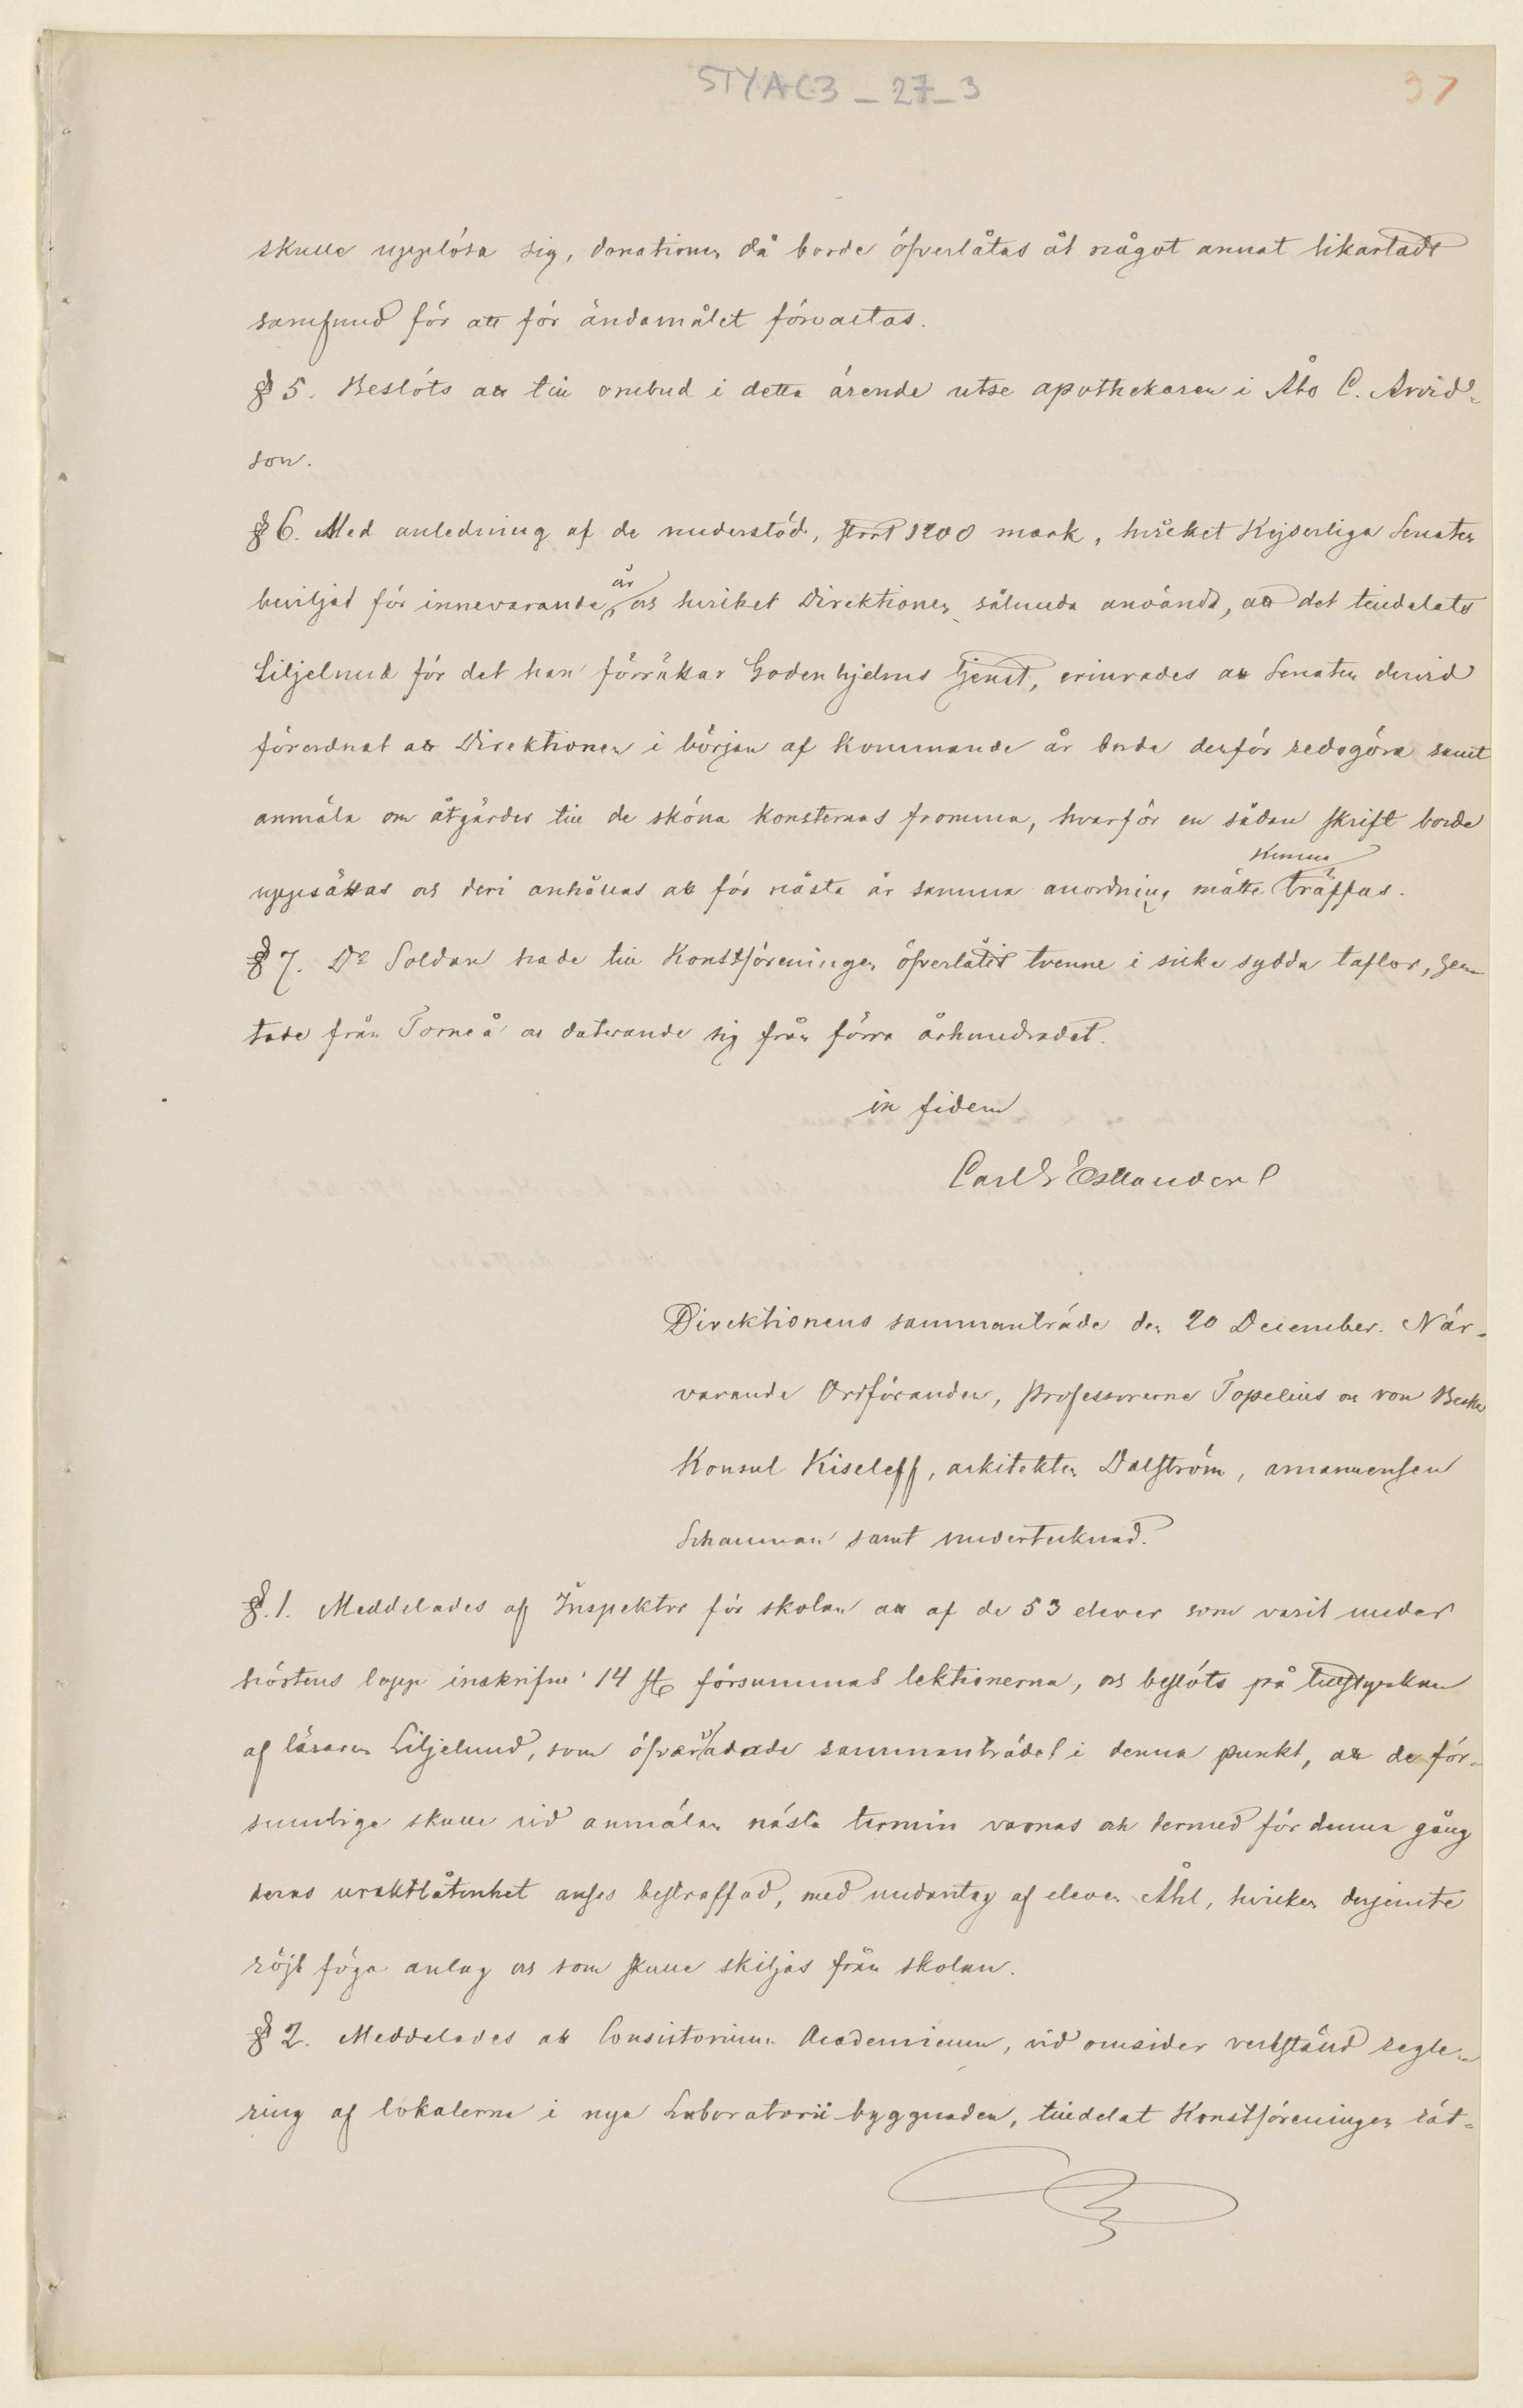 STYAC3_27_3
37
skulle upplösa sig, donationen då borde öfverlåtas åt något annat likartadt
samfund för att för ändamålet förvaltas.
§ 5. Beslöts att till ombud i detta ärende utse apothekaren i Åbo C. Arvid-
son.
§ 6. Med anledning af de understöd, stort 1200 mark, hvilket Kejserliga Senaten
beviljat för innevarande år och hvilket Direktionen sålunda användt, att det tilldelats
Liljelund för det han förrättar Godenhjelms tjenst, erinrades att Senaten dervid
förordnat att Direktionen i början af kommande år borde derför redogöra samt
anmäla om åtgärder till de sköna konsternas fromma, hvarför en sådan skrift borde
uppsättas och deri anhållas att för nästa år samma anordning måtte kunna träffas.
§ 7. Dr Soldan hade till Konstföreningen öfverlåtit tvenne i silke sydda taflor, hem-
tade från Torneå och daterande sig från förra århundradet.
in fidem
Carl G Estlander
Direktionens sammanträde den 20 December. När-
varande Ordföranden, professorerne Topelius och von Becker
Konsul Kiseleff, arkitekten Dalström, amanuensen
Schauman samt undertecknad.
§. 1. Meddelades af Inspektor för skolan att af de 53 elever som varit under
höstens lopp inskrifne 14 st försummat lektionerna, och beslöts på tillstyrkan
af läraren Liljelund, som öfvervarade sammanträdet i denna punkt, att de för-
sumlige skulle vid anmälan nästa termin varnas och dermed för denna gång
deras uraktlåtenhet anses bestraffad, med undantag af eleven Åhl, hvilken derjemte
röjt föga anlag och som skulle skiljas från skolan.
§ 2. Meddelades att Consistorium Academicum, vid omsider verkstäld regle-
ring af lokalerna i nya Laboratorii byggnaden, tilldelat Konstföreningen rät-